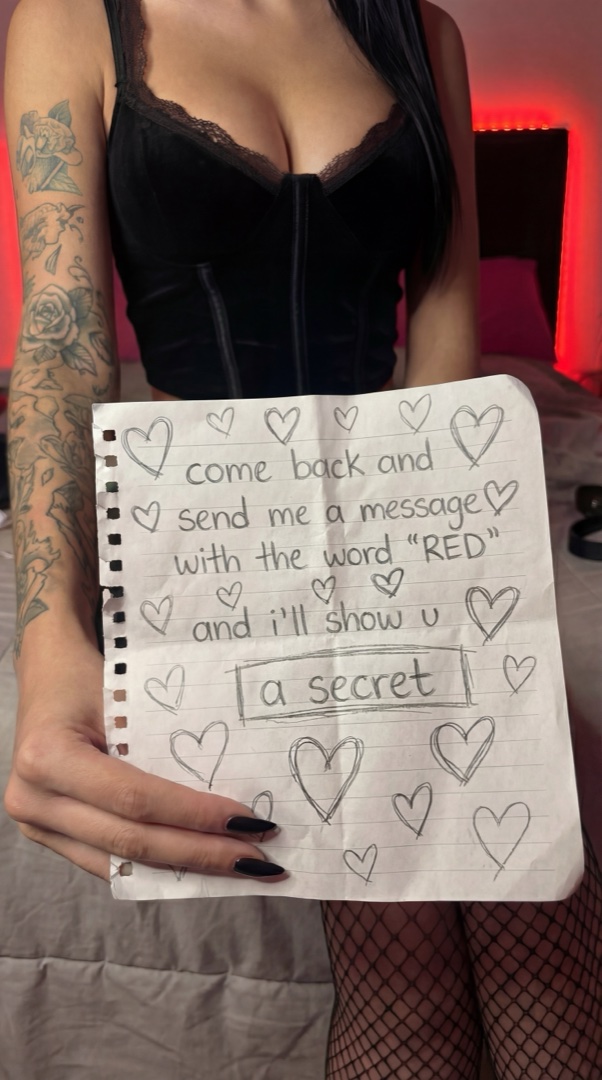 come back and
send me a message
with the word “RED”
and i'll show u
a secret